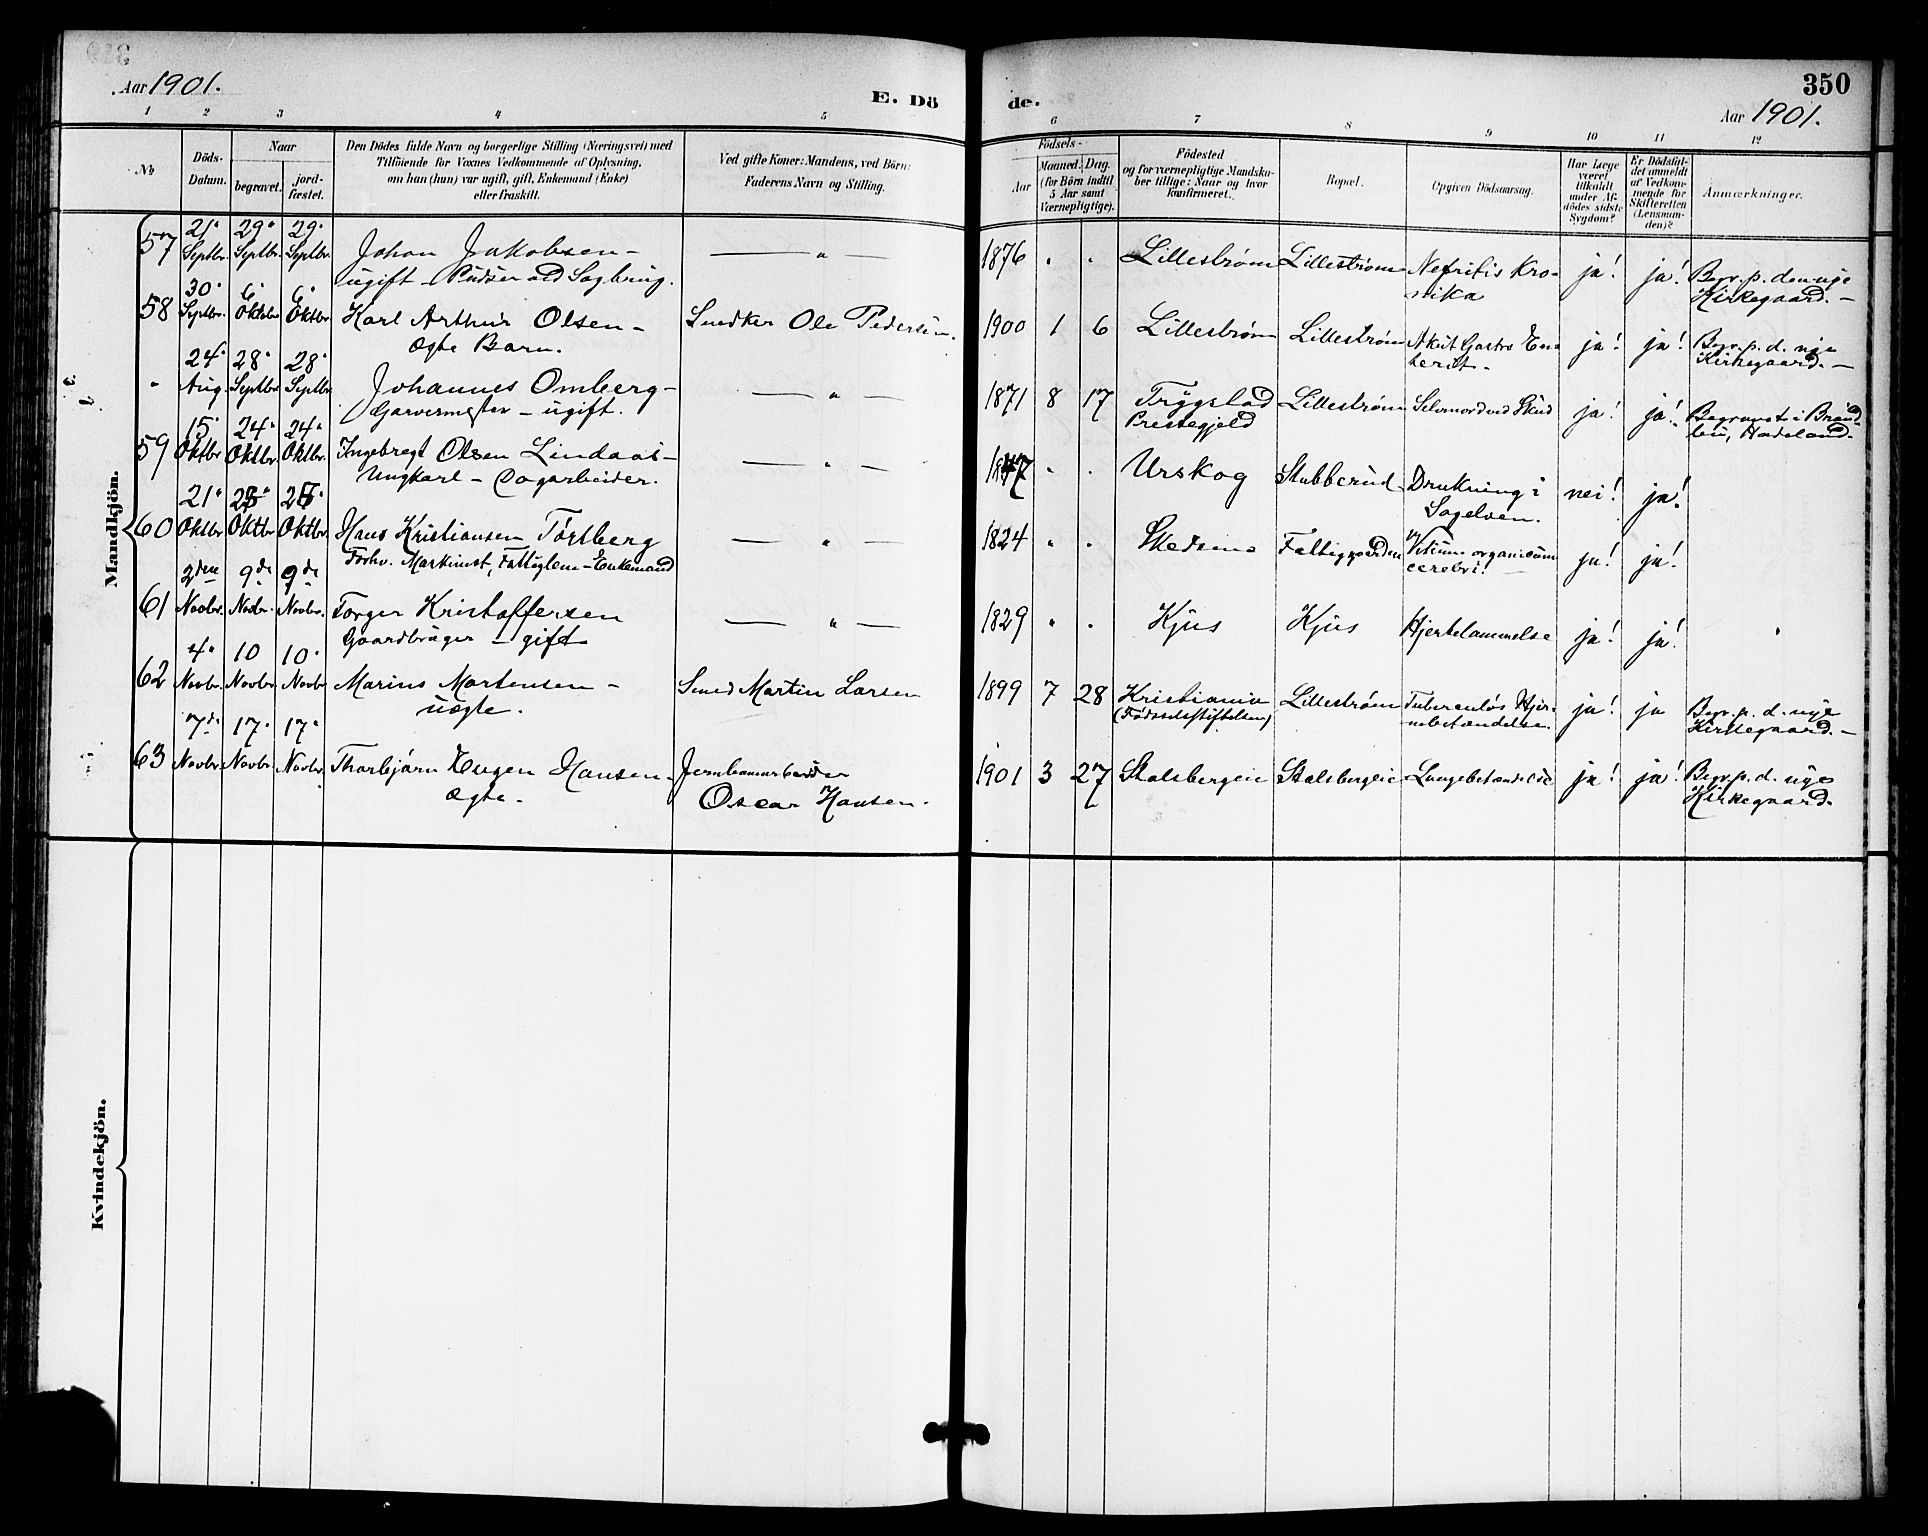 Aar 1901.
E. Dö
de.
350
Aar 1901.
1 2 3 4 5
6 7 8 9 10 11 12
No
Döds-
Datum.
Naar
begravet.
jord-
fæstet.
Den Dödes fulde Navn og borgerlige Stilling (Næringsvei) med
Tilföiende for Voxnes Vedkommende af Oplysning,
om han (hun) var ugift, gift, Enkemand (Enke)
eller fraskilt.
Ved gifte Koner: Mandens, ved Börn:
Faderens Navn og Stilling.
Födsels-
Aar
Maaned. Dag.
(for Börn indtil
5 Aar samt
Værnepligtige).
Födested
og for værnepligtige Mandskaber
tillige: Naar og hvor
konfirmeret.
Bopæl.
Opgiven Dödsaarsag.
Har Læge
været
tilkaldt
under Afdödes
sidste
Sygdom?
Er Dödsfaldet
anmeldt
af Vedkommende
for
Skifteretten
(Lensmanden)?
Anmærkninger.
Mandkjön.
57 21. Septbr. 29. Septbr. 29. Septbr. Johan Jakobsen -
ugift - Pudser ved Sagbrug.
1876 Lillestrøm Lillestrøm Nefritis Kronika
ja! ja! Begr. p. den nye
Kirkegaard. -
58 30. Septbr. 6. Oktobr. 6. Oktbr. Karl Arthur Olsen -
Ægte Barn.
Snedker Ole Pedersen.
1900 1 6 Lillestrøm Lillestrøm Akut Gastro Enterit -
ja! ja! Begr. p. d. nye
Kirkegaard. -
" 24. Aug. 28. Septbr. 28. Septbr. Johannes Omberg -
Garvermester - ugift.
1871 8 17 Trygstad
Prestegjeld
Lillestrøm Selvmord ved Skud ja! ja! Begravet i Brandbu, Hadeland.
59 15. Oktbr. 24. Oktbr. 24. Oktbr. Ingebregt Olsen Lindaas -
Ungkarl - Dagarbeider.
1847 Urskog Stubberud Drukning i
Sagelven.
nei! ja!
60 21. Oktbr. Oktbr. Oktbr. Hans Kristiansen Torsberg
Forhv. Maskinist, Fattiglem - Enkemand
1824 Skedsmo Fattiggaarden Vitium organicum
cerebri!
ja! ja!
61 2den Novbr. 9de Novbr. 9de Novbr. Torger Kristoffersen
Gaardbruger - gift
1829 Kjus Kjus Hjertelammelse ja! ja!
62 4. Novbr. 10 Novbr. 10. Novbr. Marius Martensen -
uægte.
Smed Martin Larsen
1899 7 28 Kristiania
(Fødselsstiftelsen)
Lillestrøm Tuberculøs Hjernebetændelse.
ja! ja Begr. p. d. nye
Kirkegaard. -
63 7de Novbr. 17. Novbr. 17. Novbr. Thorbjørn Eugen Hansen.
Ægte -
Jernbanearbeider
Oscar Hansen.
1901 3 27 Stalsbergeie Stalsbergeie Lungebetændelse ja! ja! Begr. p. d. nye
Kirkegaard.
Kvindekjön.